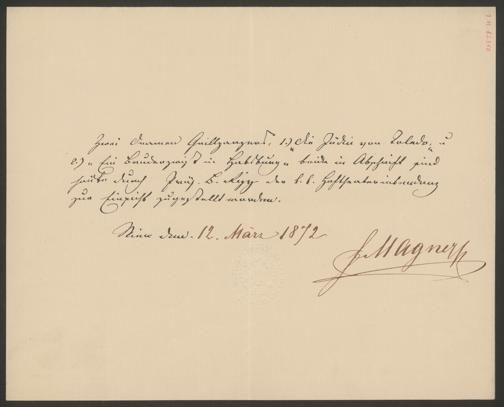 Zwei Dramen Grillparzers, 1.) „Die Jüdin von Toledo" u
2.) „Ein Bruderzwist in Habsburg" beide in Abschrift sind
heute durch der k. k. Hoftheaterintendanz
zur Einsicht zugestellt worden.
Wien den 12. März 1872
Magner